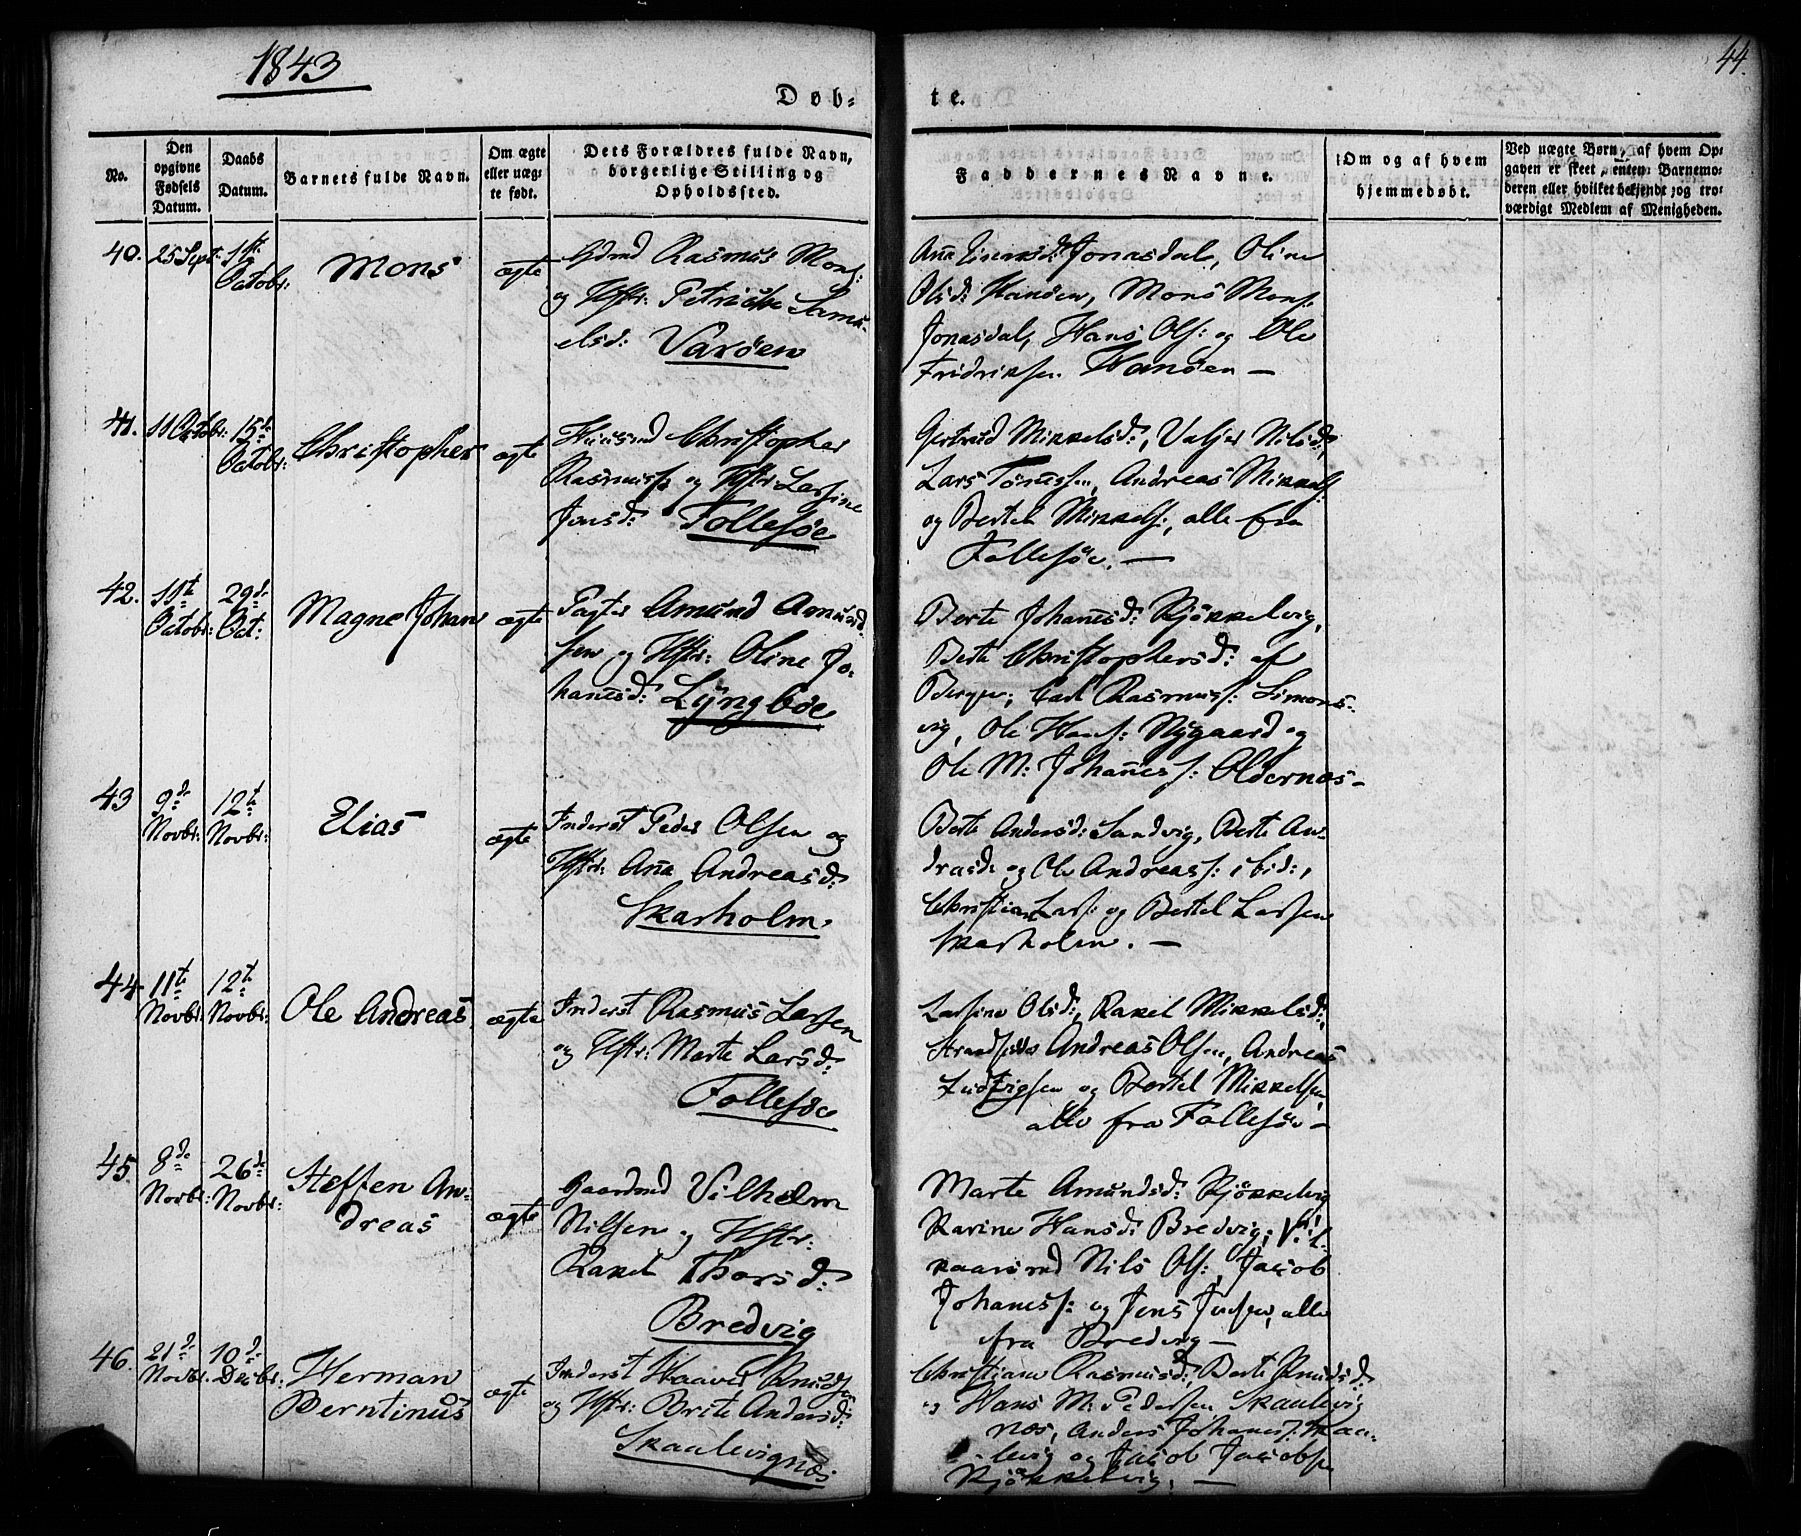 1843
44.
Døb-
te.
No.
Den
opgivne
Fødsels
Datum.
Daabs
Datum.
Barnets fulde Navn.
Om ægte
eller uæg-
te født.
Dets Forældres fulde Navn,
borgerlige Stilling og
Opholdssted.
Faddernes Navne.
Om og af hvem
hjemmedøbt.
Ved uægte Børn, af hvem Op-
gaven er skeet, enten Barnemo-
deren eller hvilket bekjendt og tro-
værdigt Medlem af Menigheden.
40.
25 Sept:
1ste
Octobr:
Mons
ægte
Gdmd Rasmus Mons:
og Hstr: Petrikke Samu-
elsd: Varøen
Ana Einersd: Jonasdal, Oline
Olsd: Hanøen, Mons Mons:
Jonasdal, Hans Ols: og Ole
Fridriksen Hanøen —
41.
11 Octobr:
15de
Octobr:
Christopher
ægte
Huusmd Christopher
Rasmuss: og Hstr Larsine
Jonsd: Follesøe
Gertrud Mikkelsd:, Nilsd:,
Lars Tønessen, Andreas Mikkels:
og Bertel Mikkels:, alle fra
Follesøe. —
42.
11te
Octobr:
29de
Oct:
Magne Johan
ægte
Pagter Amund Amund-
sen og Hstr: Oline Jo-
hanesd: Lyngbøe
Berte Johanesd: Kjøkkelvig,
Berte Christophersd: af
Bergen, Carl Rasmuss: Simons-
vig, Ole Hans: Nygaard og
Ole M: Johaness: Oldernæs —
43
9de
Novbr:
12te
Novbr:
Elias
ægte
Inderst Peder Olsen og
Hstr: Ana Andreasd:
Skarholm
Berte Andersd: Sandvig, Berte An-
drasd: og Ole Andreass: ibid:,
Christian Lars: og Bertel Larsen
Skarholm. —
44
11te
Novbr:
12te
Novbr:
Ole Andreas
ægte
Inderst Rasmus Larsen
og Hstr: Marte Larsd:
Follesøe
Larsine Olsd:, Rakel Mikkelsd:,
Strandsidder Andreas Olsen, Andreas
Ludvigsen og Bertel Mikkelsen,
alle fra Follesøe —
45.
8de
Novbr:
26de
Novbr:
Steffen An-
dreas
ægte
Gaardmd Vilhelm
Nilsen og Hstr:
Rakel Thorsd:
Bredvig
Marte Amundsd: Kjøkkelvig
Karine Hansd: Bredvig, Vil-
kaarsmd Nils Ols:, Jacob
Johaness: og Jens Jensen, alle
fra Bredvig —
46.
21de
Novbr:
10de
Decbr:
Herman
Berntinus
ægte
Inderst Haaver Knudsen
og Hstr: Brite Andersd:
Skaalevignæs
Christiane Rasmusd:, Berte Knudsd:
og Hans M: Pedersen Skaalevig
næs, Anders Johaness: Skaa-
levig og Jacob Jacobsen
Kjøkkelvig. —